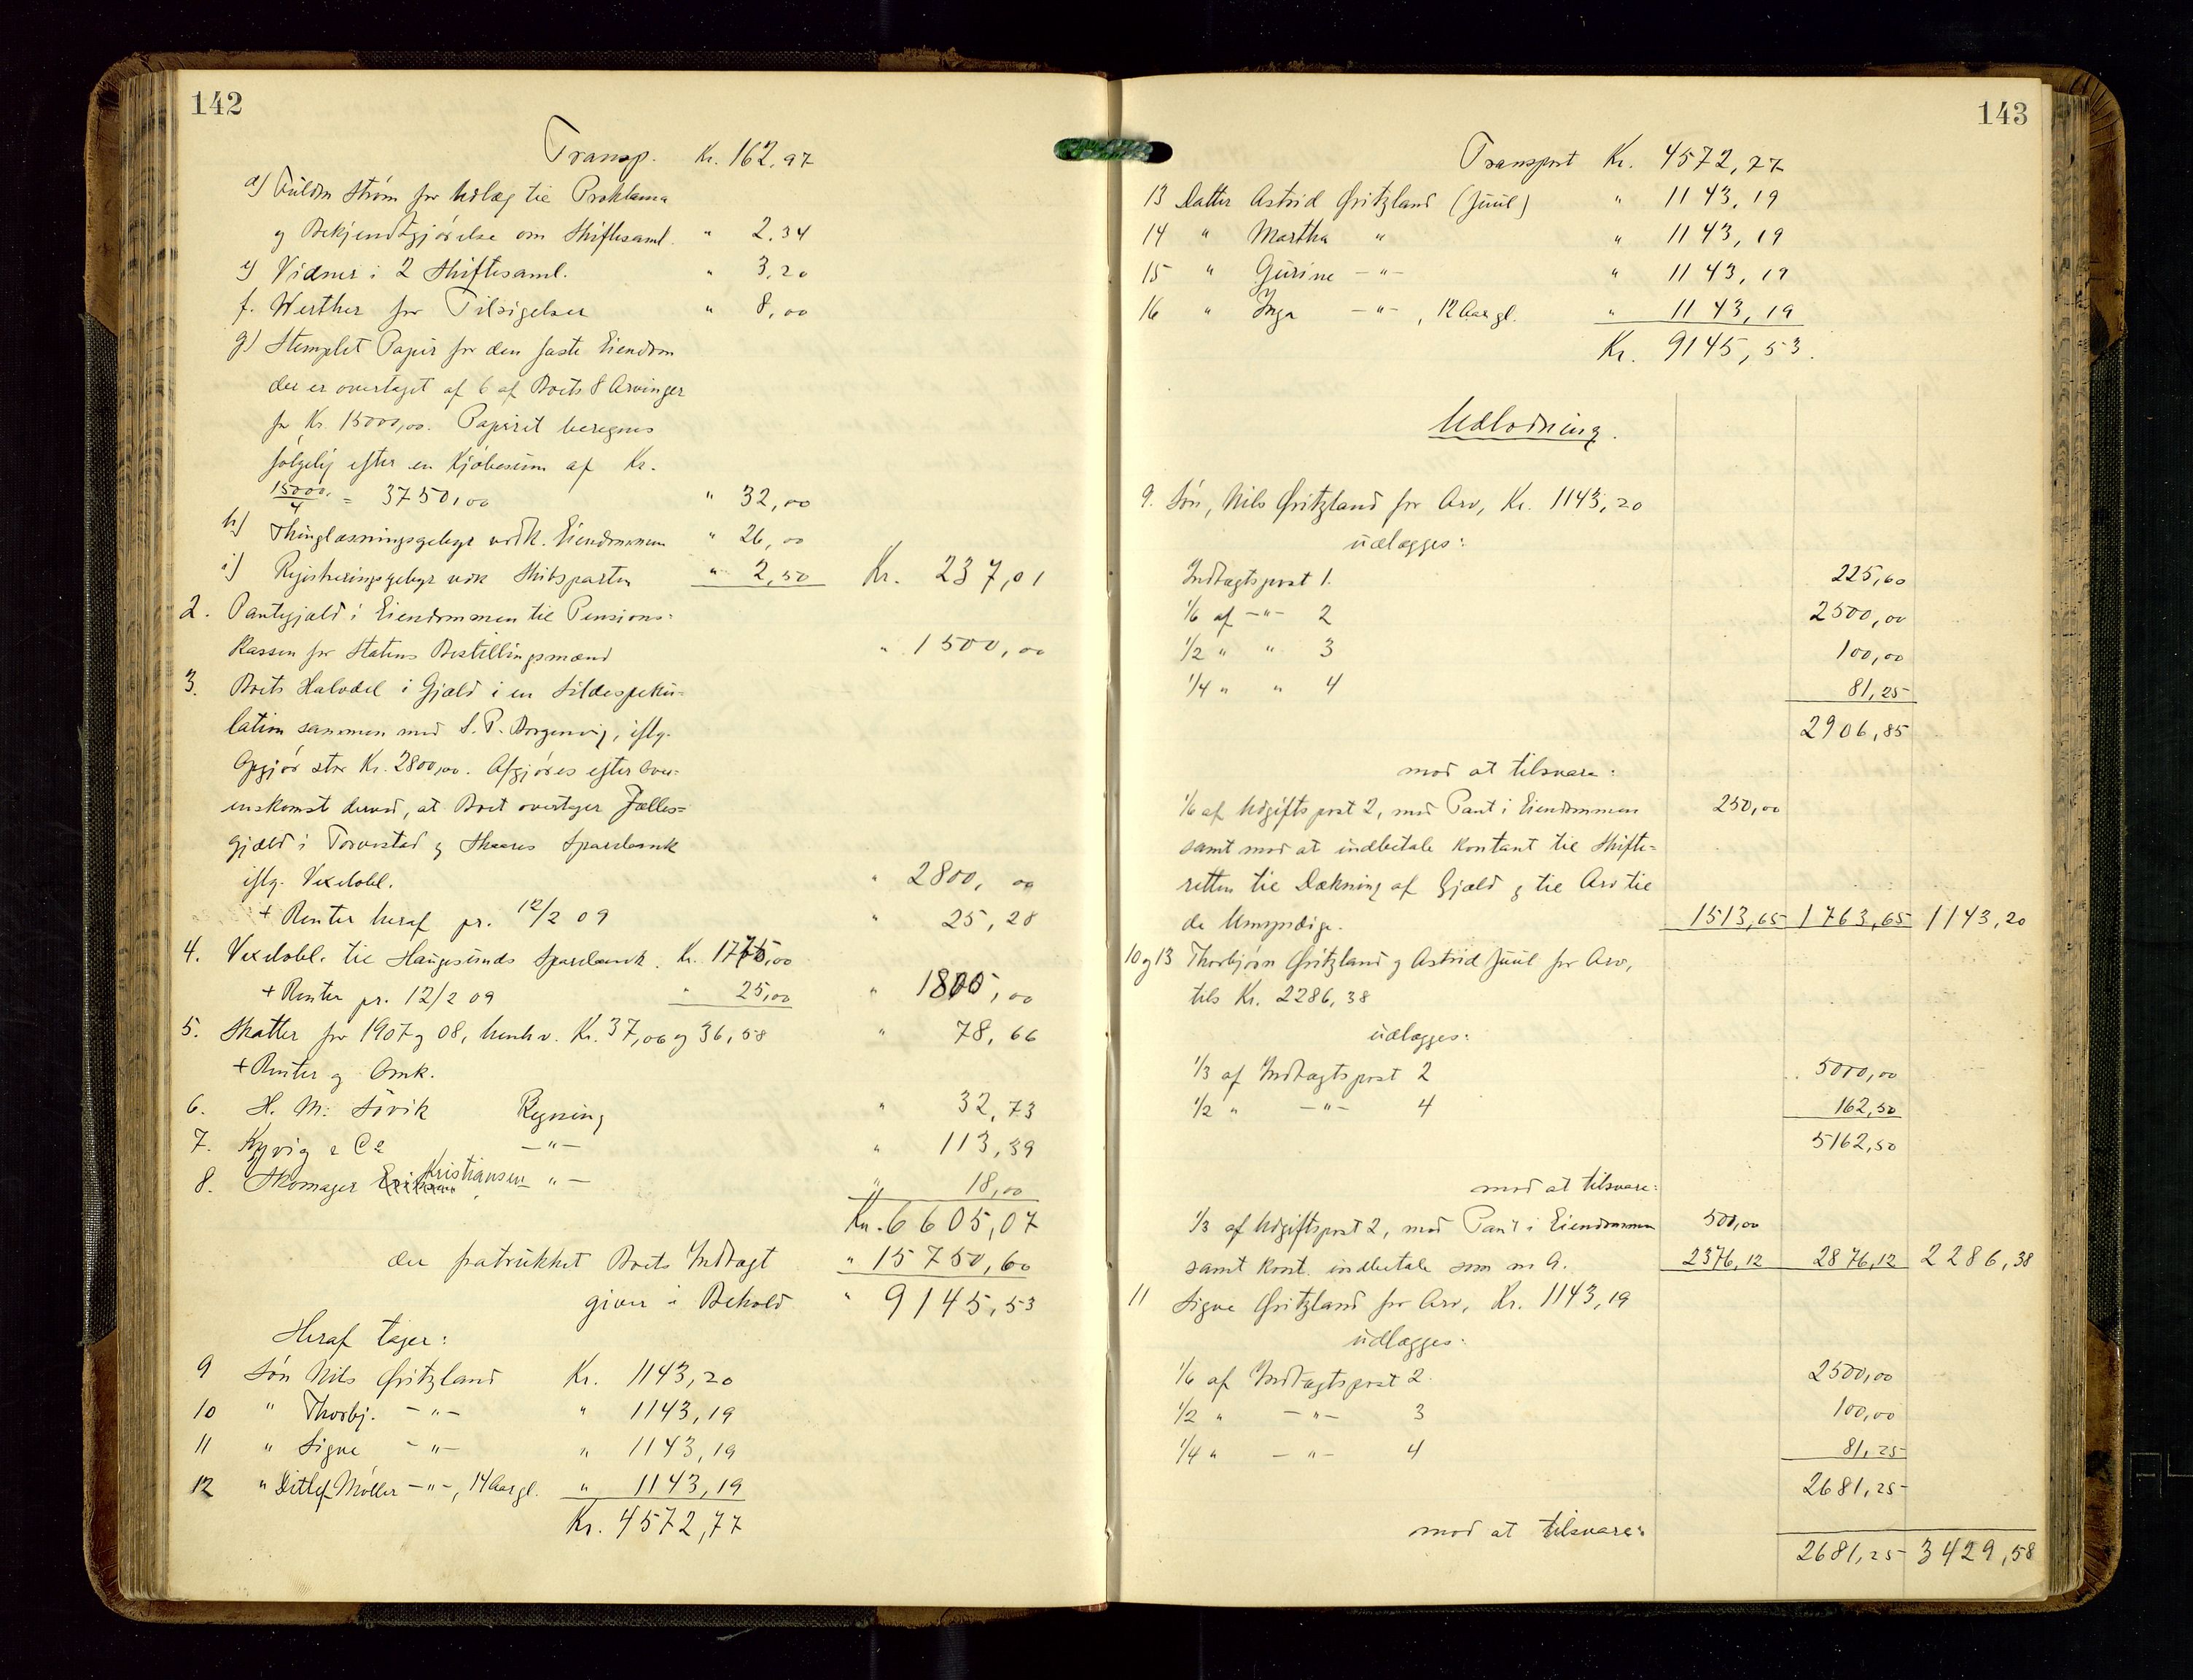 142
Transp. Kr. 162,97
d) Fuldm Strøm for Udlæg til Proklama
og Bekjendtgjørelse om Skiftesaml. " 2.34
e) Vidner i 2 Skiftesaml. " 3,20
f. Werther for Tilsigelser " 8,00
g) Stemplet Papir for den faste Eiendom
der er overtaget af 6 af Boets 8 Arvinger
for Kr. 15000,00. Papiret beregnes
følgelig efter en Kjøbesum af Kr.
15000,/4 = 3750,00 " 32,00
h) Thinglæsningsgebyr vedk. Eiendommen " 26,00
i) Registreringsgebyr vedk Skibsparten " 2,50 Kr. 237,01
2. Pantegjæld i Eiendommen til Pensions-
kassen for Statens Bestillingsmænd " 1500,00
3. Boets Halvdel i Gjæld i en Sildespeku-
lation sammen med S. P. Borgenvig, iflg.
Opgjør stor Kr. 2800,00. Afgjøres efter Over-
enskomst derved, at Boet overtager Fælles-
gjæld i Torvestad og Skaares Sparebank
iflg. Vexelobl. " 2800,00
+ Renter heraf pr. 12/2 09 " 25,28
4. Vexelobl. til Haugesunds Sparebank. Kr. 1775,00
+ Renter pr. 12/2 09 " 25,00 " 1800,00
5. Skatter for 1907 og 08, henhv. Kr. 37,06 og 36,58 " 78,66
+ Renter og Omk.
6. H. M. Søvik Regning " 32,73
7. Kyvig & Co —"— " 113,39
8. Skomager Kristiansen —"— " 18,00
Kr. 6605,07
der fratrukket Boets Indtægt " 15750,60
giver i Behold " 9145,53
Heraf tager:
9 Søn Nils Gritzland Kr. 1143,20
10 " Thorbj. —"— " 1143,19
11 " Signe —"— " 1143,19
12 " Ditlef Møller —"—, 14 Aar gl. " 1143,19
Kr. 4572,77
143
Transport Kr. 4572,77
13 Datter Astrid Gritzland (Juul) " 1143,19
14 " Martha " " 1143,19
15 " Gurine —"— " 1143,19
16 " Inga —"—, 12 Aar gl. " 1143,19
Kr. 9145,53.
Udlodning.
9. Søn, Nils Gritzland for Arv, Kr. 1143,20
udlægges:
Indtægtspost 1. 225,60
1/6 af —"— 2 2500,00
1/2 " " 3 100,00
1/4 " " 4 81,25
2906,85
mod at tilsvare:
1/6 af Udgiftspost 2, med Pant i Eiendommen 250,00
samt mod at indbetale kontant til Skifte-
retten til Dækning af Gjæld og til Arv til
de Umyndige. 1513,65 1763,65 1143,20
10 og 13 Thorbjørn Gritzland og Astrid Juul for Arv,
tils Kr. 2286,38
udlægges:
1/3 af Indtægtspost 2 5000,00
1/2 " —"— 4 162,50
5162,50
mod at tilsvare:
1/3 af Udgiftspost 2, med Pant i Eiendommen 500,00
samt kont. indbetale som nr 9. 2376,12 2876,12 2286,38
11 Signe Gritzland for Arv, Kr. 1143,19
udlægges:
1/6 af Indtægtspost 2. 2500,00
1/2 " —"— 3 100,00
1/4 " —"— 4 81,25
2681,25
mod at tilsvare:
2681,25 3429,58